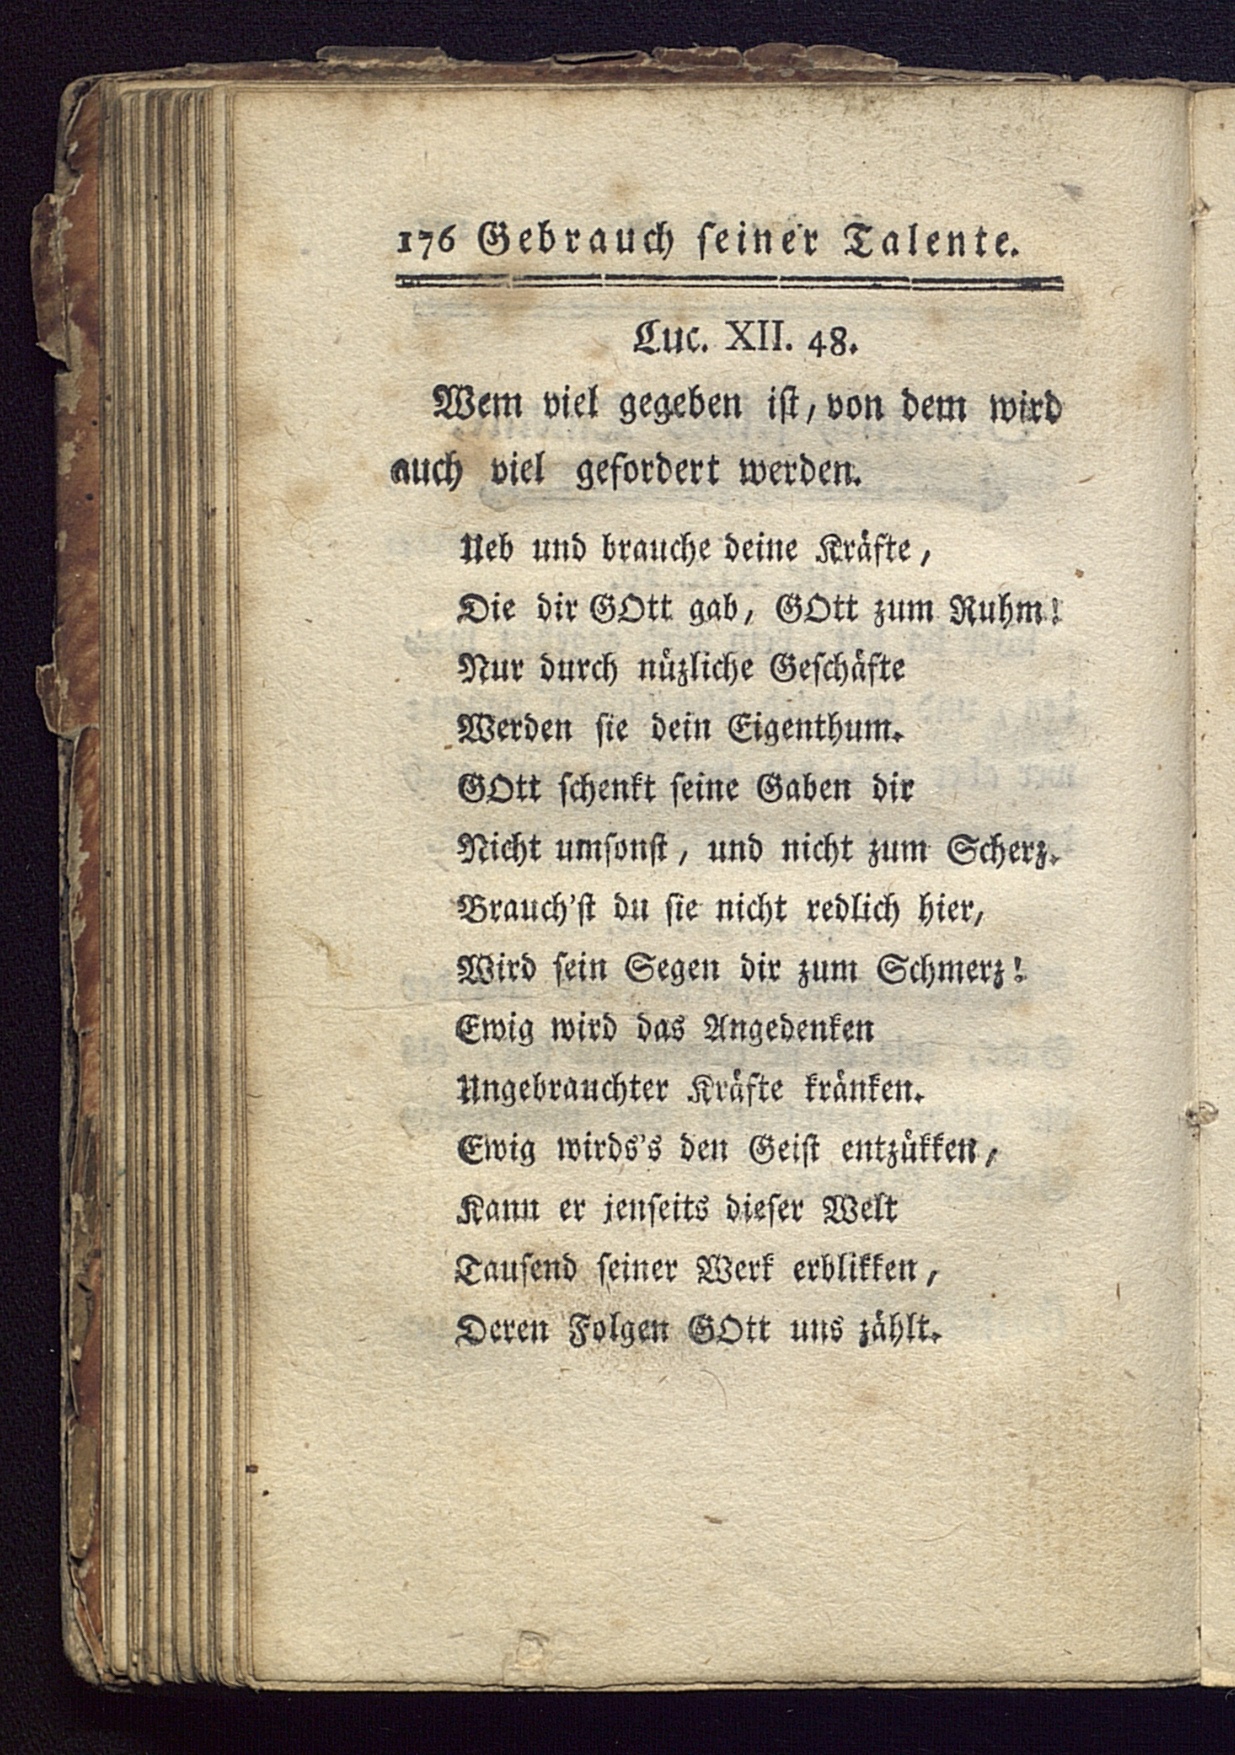 176 Gebrauch seiner Talente.
Luc. XII. 48.
Wem viel gegeben ist, von dem wird
auch viel gefordert werden.
Ueb und brauche deine Kräfte,
Die dir GOtt gab, GOtt zum Ruhm!
Nur durch nüzliche Geschäfte
Werden sie dein Eigenthum.
GOtt schenkt seine Gaben dir
Nicht umsonst, und nicht zum Scherz.
Brauch'st du sie nicht redlich hier,
Wird sein Segen dir zum Schmerz!
Ewig wird das Angedenken
Ungebrauchter Kräfte kränken.
Ewig wirds's den Geist entzükken,
Kann er jenseits dieser Welt
Tausend seiner Werk erblikken,
Deren Folgen GOtt uns zählt.